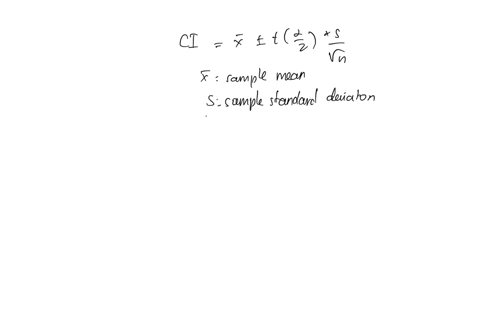 CI = x̄ ± t(α/2) * s/√n
x̄ : sample mean
S : sample standard deviaton